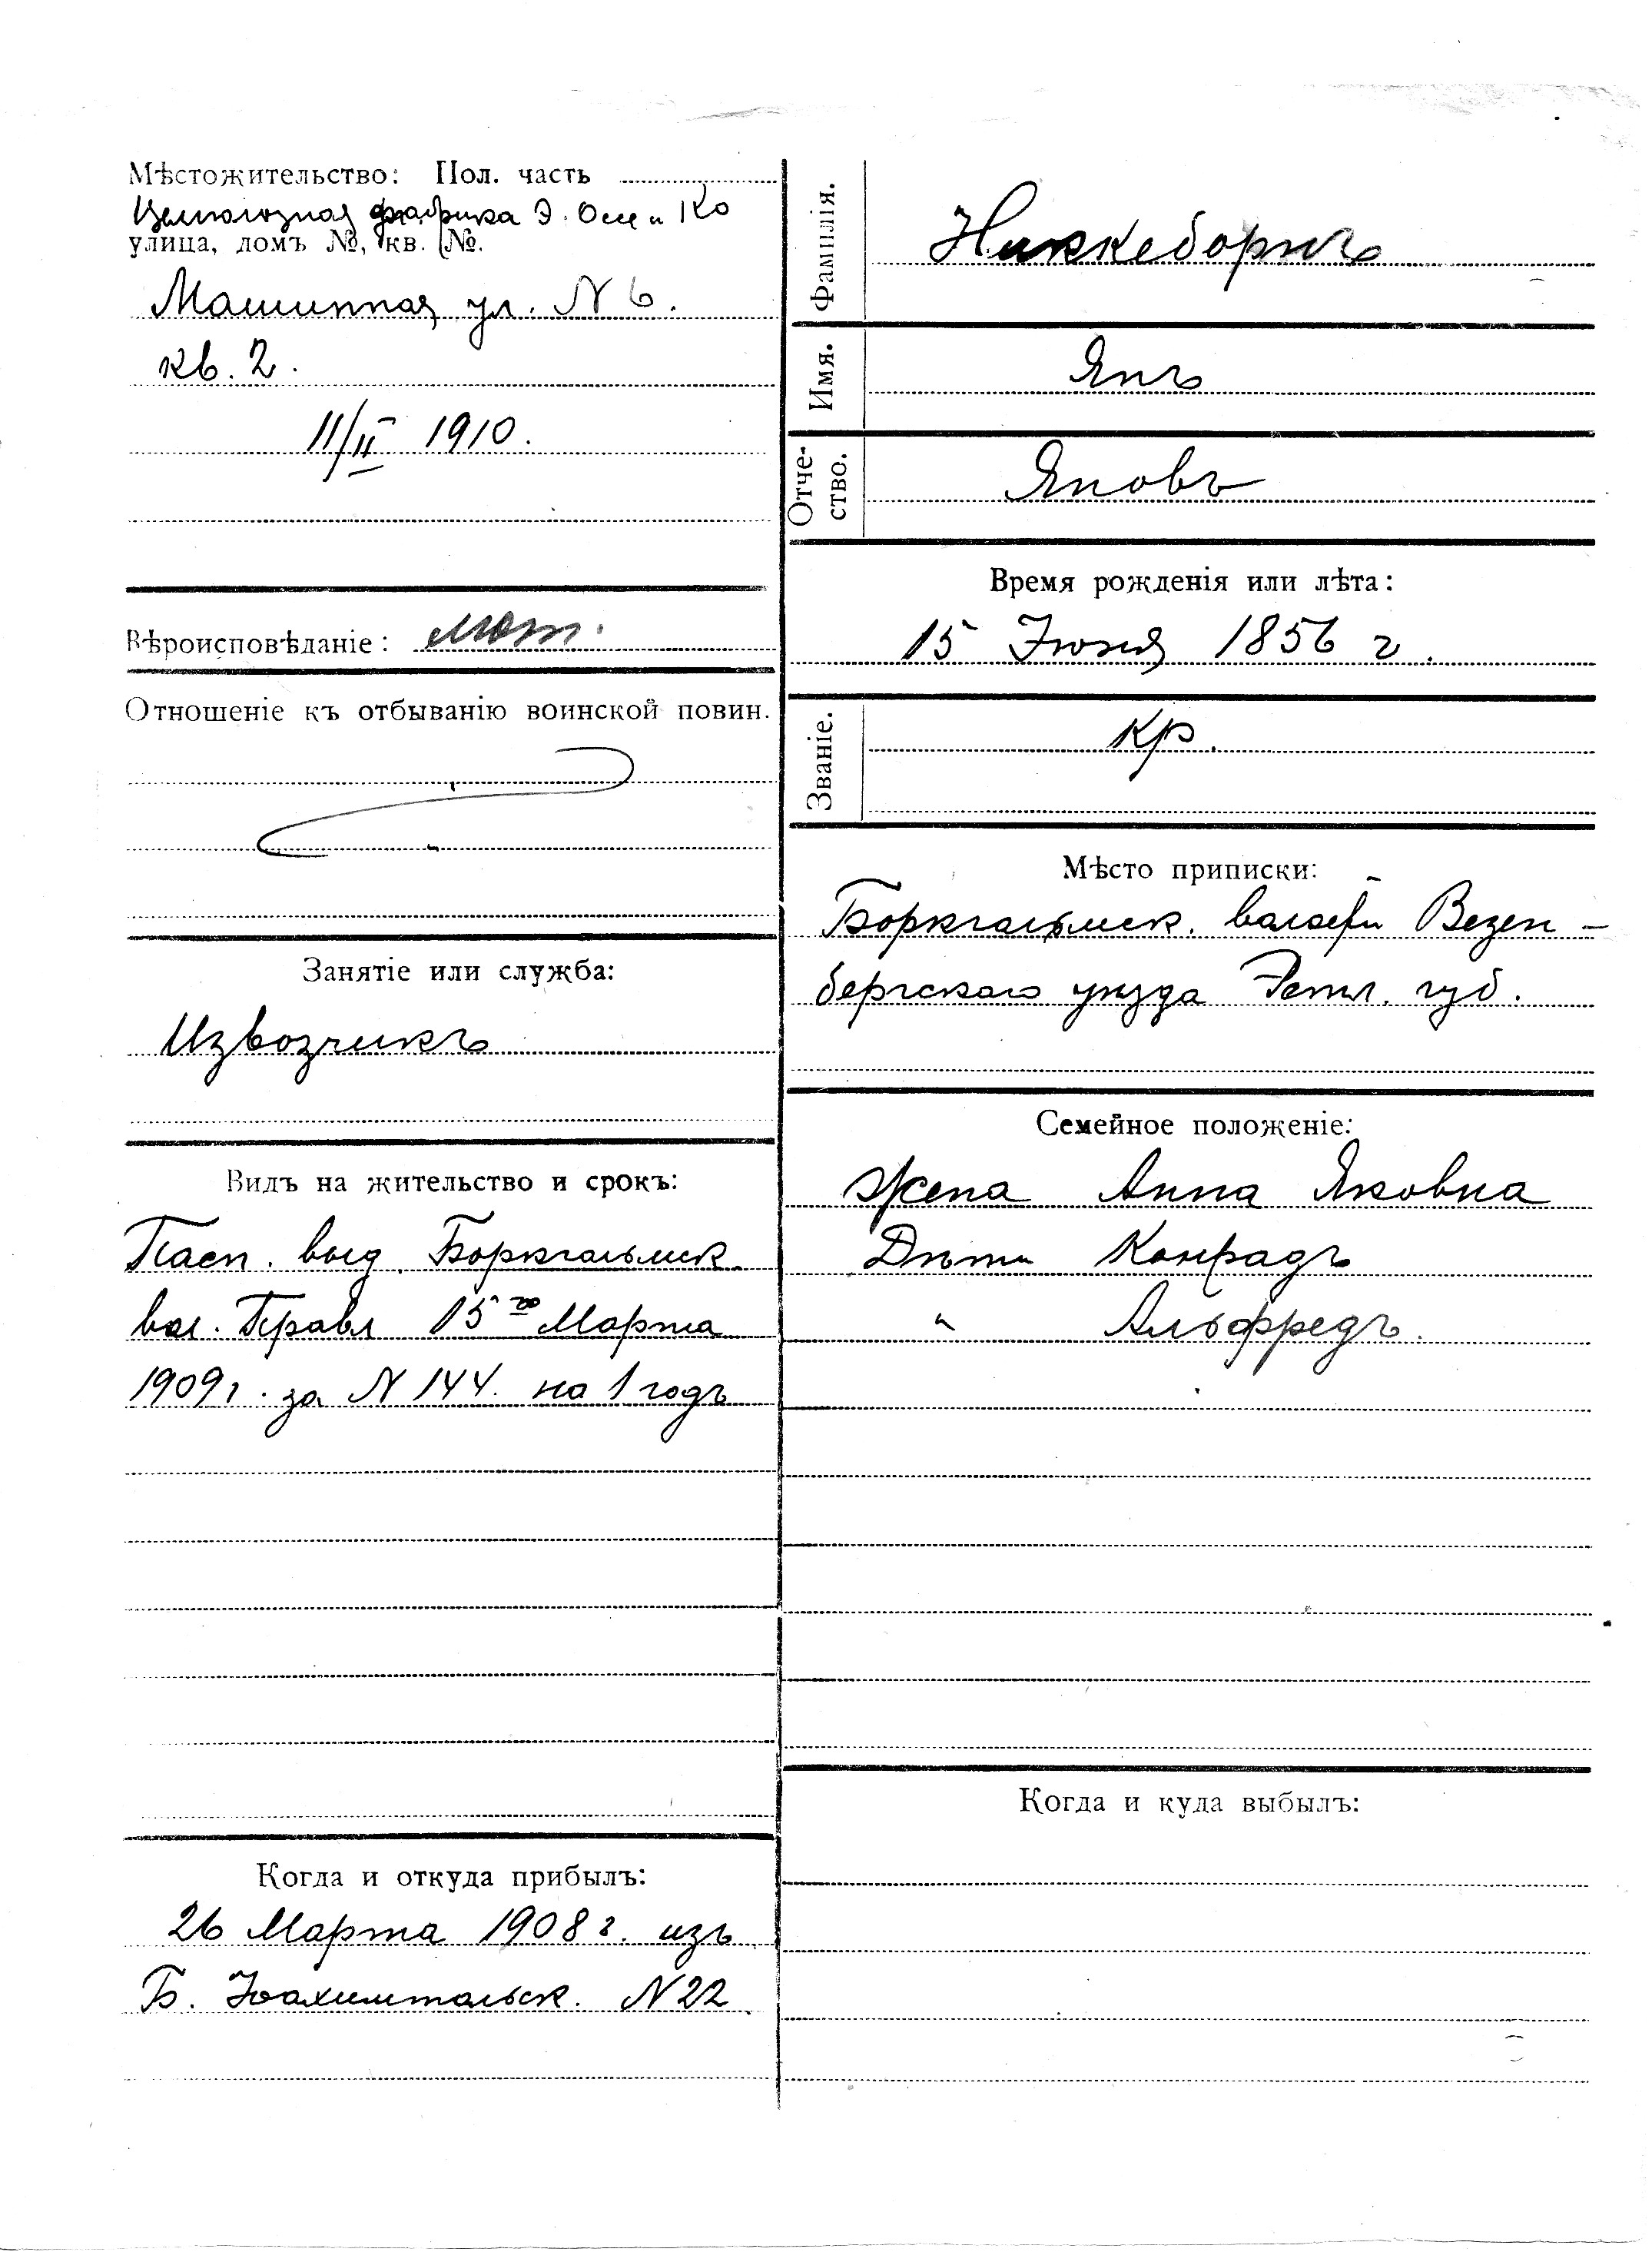 Мѣстожительство: Пол. часть
Целлюлозная фабрика Э. Осс и Ко
улица, домъ №, кв. №.
Машинная ул. N 6.
кв. 2.
11/II 1910.
Вѣроисповѣданіе: лют.
Отношеніе къ отбыванію воинской повин.
Занятіе или служба:
Извозчикъ
Видъ на жительство и срокъ:
Пасп. выд. Боркгольмск.
вол. Правл 15го Марта
1909г. за N 144. на 1 годъ
Когда и откуда прибылъ:
26 Марта 1908 г. изъ
Б. Іоахимтальск. N 22
Фамилія.
Имя.
Янъ
Отче-
ство.
Яновъ
Время рожденія или лѣта:
15 Іюня 1856 г.
Званіе.
Кр.
Мѣсто приписки:
Боркгольмск. волости Везен-
бергскаго уѣзда Эстл. губ.
Семейное положеніе:
Жена Анна Яковна
Дѣти Конрадъ
" Альфредъ.
Когда и куда выбылъ: